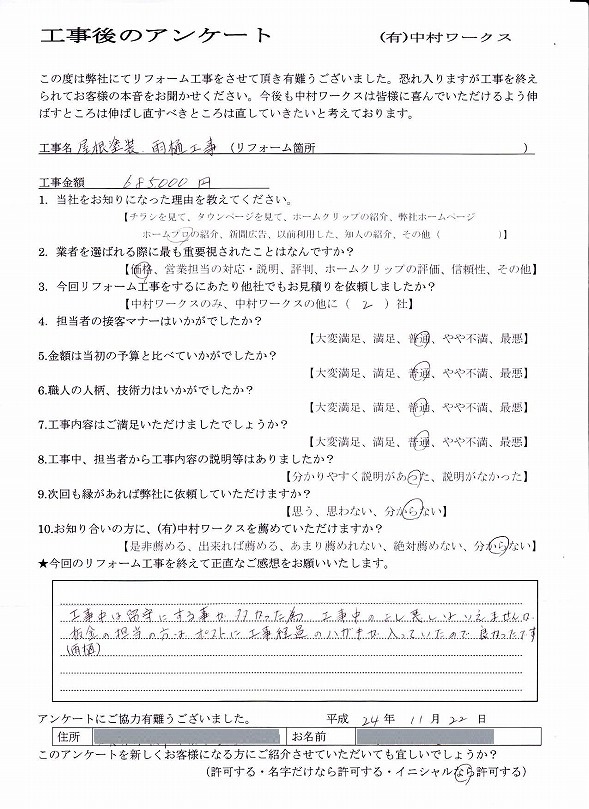 工事後のアンケート (有)中村ワークス
この度は弊社にてリフォーム工事をさせて頂き有難うございました。恐れ入りますが工事を終え
られてお客様の本音をお聞かせください。今後も中村ワークスは皆様に喜んでいただけるよう伸
ばすところは伸ばし直すべきところは直していきたいと考えております。
工事名 屋根塗装、雨樋工事 (リフォーム箇所 )
工事金額 685000 円
1. 当社をお知りになった理由を教えてください。
【チラシを見て、タウンページを見て、ホームクリップの紹介、弊社ホームページ
ホームプロの紹介、新聞広告、以前利用した、知人の紹介、その他( )】
2. 業者を選ばれる際に最も重要視されたことはなんですか?
【価格、営業担当の対応・説明、評判、ホームクリップの評価、信頼性、その他】
3. 今回リフォーム工事をするにあたり他社でもお見積りを依頼しましたか?
【中村ワークスのみ、中村ワークスの他に( 2 )社】
4. 担当者の接客マナーはいかがでしたか?
【大変満足、満足、普通、やや不満、最悪】
5.金額は当初の予算と比べていかがでしたか?
【大変満足、満足、普通、やや不満、最悪】
6.職人の人柄、技術力はいかがでしたか?
【大変満足、満足、普通、やや不満、最悪】
7.工事内容はご満足いただけましたでしょうか?
【大変満足、満足、普通、やや不満、最悪】
8.工事中、担当者から工事内容の説明等はありましたか?
【分かりやすく説明があった、説明がなかった】
9.次回も縁があれば弊社に依頼していただけますか?
【思う、思わない、分からない】
10.お知り合いの方に、(有)中村ワークスを薦めていただけますか?
【是非薦める、出来れば薦める、あまり薦めれない、絶対薦めない、分からない】
★今回のリフォーム工事を終えて正直なご感想をお願いいたします。
工事中は留守にする事が多かった為 工事中のことは
板金の担当の方はポストに工事経過のハガキが入っていたので良かったです
(雨樋)
アンケートにご協力有難うございました。 平成 24 年 11 月 22 日
住所 お名前
このアンケートを新しくお客様になる方にご紹介させていただいても宜しいでしょうか?
(許可する・名字だけなら許可する・イニシャルなら許可する)